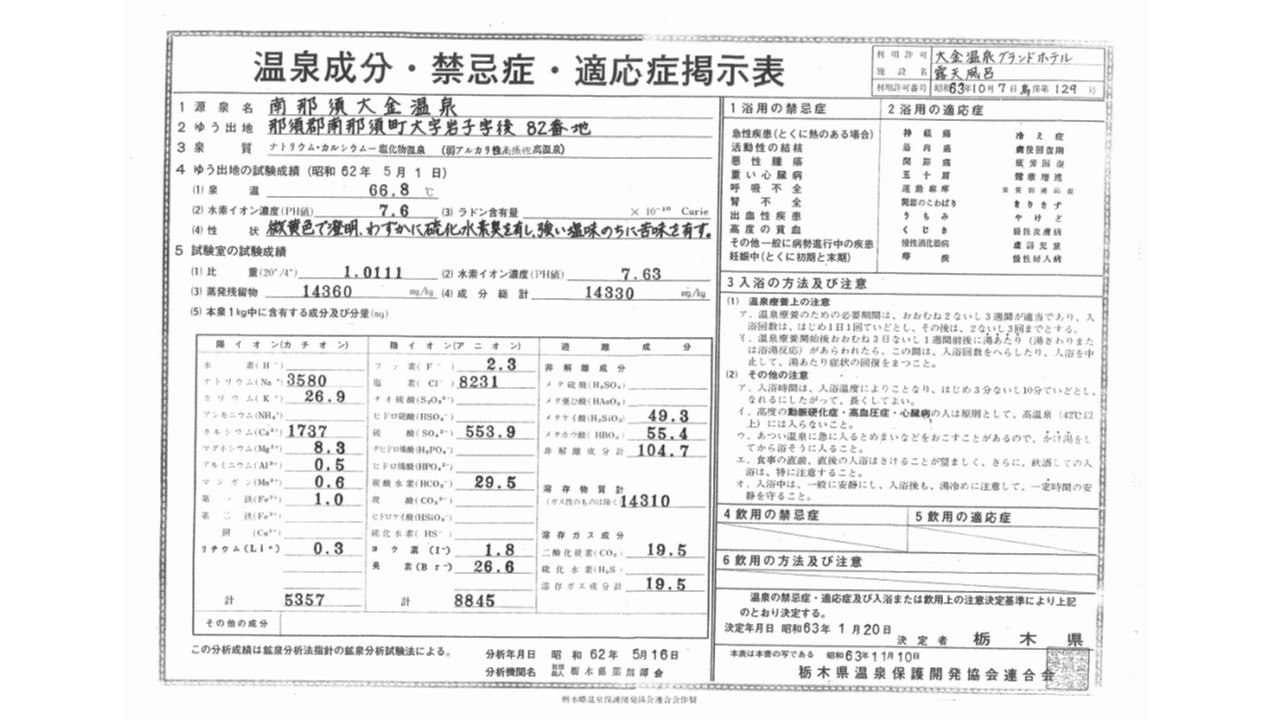 温泉成分・禁忌症・適応症掲示表
利用許可 施設名 大金温泉グランドホテル 露天風呂
利用許可番号 昭和63年10月7日 保第129号
1 源泉名 南那須大金温泉
2 ゆう出地 那須郡南那須町大字岩子字後 82番地
3 泉質 ナトリウム・カルシウム−塩化物温泉 (弱アルカリ性高張性高温泉)
4 ゆう出地の試験成績(昭和62年5月1日)
(1) 泉温 66.8 ℃
(2) 水素イオン濃度(PH値) 7.6 (3) ラドン含有量 × 10⁻¹⁰ Curie
(4) 性状 微黄色で澄明、わずかに硫化水素臭を有し、強い塩味のちに苦味を有す。
5 試験室の試験成績
(1) 比重(20°/4°) 1.0111 (2) 水素イオン濃度(PH値) 7.63
(3) 蒸発残留物 14360 mg/kg (4) 成分総計 14330 mg/kg
(5) 本泉1kg中に含有する成分及び分量(mg)
陽イオン(カチオン)
水素(H⁺)
ナトリウム(Na⁺) 3580
カリウム(K⁺) 26.9
アンモニウム(NH₄⁺)
カルシウム(Ca²⁺) 1737
マグネシウム(Mg²⁺) 8.3
アルミニウム(Al³⁺) 0.5
マンガン(Mn²⁺) 0.6
第一鉄(Fe²⁺) 1.0
第二鉄(Fe³⁺)
銅(Cu²⁺)
リチウム(Li⁺) 0.3
計 5357
陰イオン(アニオン)
フッ素(F⁻) 2.3
塩素(Cl⁻) 8231
チオ硫酸(S₂O₃²⁻)
ヒドロ硫酸(HSO₄⁻)
硫酸(SO₄²⁻) 553.9
ヂヒドロ燐酸(H₂PO₄⁻)
ヒドロ燐酸(HPO₄²⁻)
炭酸水素(HCO₃⁻) 29.5
炭酸(CO₃²⁻)
ヒドロケイ酸(HSiO₃⁻)
硫化水素(HS⁻)
ヨウ素(I⁻) 1.8
臭素(Br⁻) 26.6
計 8845
遊離成分
非解離成分
メタ硫酸(H₂SO₄)
メタ亜ひ酸(HAsO₂)
メタケイ酸(H₂SiO₃) 49.3
メタホウ酸(HBO₂) 55.4
非解離成分計 104.7
溶存物質計
(ガス性のものは除く) 14310
溶存ガス成分
二酸化炭素(CO₂) 19.5
硫化水素(H₂S)
溶存ガス成分計 19.5
その他の成分
この分析成績は鉱泉分析法指針の鉱泉分析試験法による。
分析年月日 昭和62年5月16日
分析機関名 社団法人 栃木県薬剤師会
1 浴用の禁忌症
急性疾患(とくに熱のある場合)
活動性の結核
悪性腫瘍
重い心臓病
呼吸不全
腎不全
出血性疾患
高度の貧血
その他一般に病勢進行中の疾患
妊娠中(とくに初期と末期)
2 浴用の適応症
神経痛 冷え症
筋肉痛 病後回復用
関節痛 疲労回復
五十肩 健康増進
運動麻痺 泉質別適応症
関節のこわばり きりきず
うちみ やけど
くじき 慢性皮膚病
慢性消化器病 虚弱児童
痔疾 慢性婦人病
3 入浴の方法及び注意
(1) 温泉療養上の注意
ア. 温泉療養のための必要期間は、おおむね2ないし3週間が適当であり、入
浴回数は、はじめ1日1回ていどとし、その後は、2ないし3回までとする。
イ. 温泉療養開始後おおむね3日ないし1週間前後に湯あたり(湯さわりまた
は浴湯反応)があらわれたら、この間は、入浴回数をへらしたり、入浴を中
止して、湯あたり症状の回復をまつこと。
(2) その他の注意
ア. 入浴時間は、入浴温度によりことなり、はじめ3分ないし10分ていどとし、
なれるにしたがって、長くしてよい。
イ. 高度の動脈硬化症・高血圧症・心臓病の人は原則として、高温泉(42℃以
上)には入らないこと。
ウ. あつい温泉に急に入るとめまいなどをおこすことがあるので、かけ湯をし
てから浴そうに入ること。
エ. 食事の直前、直後の入浴はさけることが望ましく、さらに、飲酒しての入
浴は、特に注意すること。
オ. 入浴中は、一般に安静にし、入浴後も、湯冷めに注意して、一定時間の安
静を守ること。
4 飲用の禁忌症 5 飲用の適応症
6 飲用の方法及び注意
温泉の禁忌症・適応症及び入浴または飲用上の注意決定基準により上記
のとおり決定する。
決定年月日 昭和63年1月20日
決定者 栃木県
本表は本書の写である 昭和63年11月10日
栃木県温泉保護開発協会連合会
栃木県温泉保護開発協会連合会作製